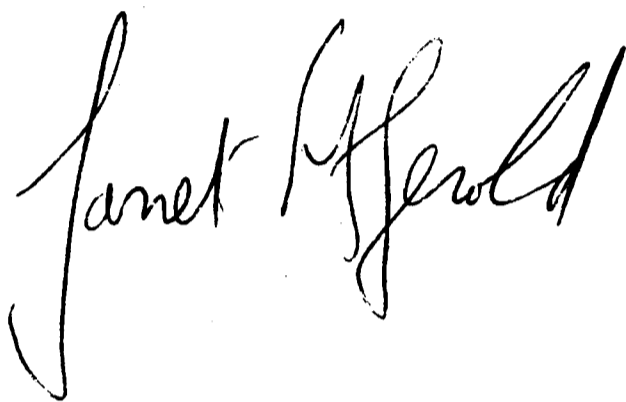 Janet M Jerold